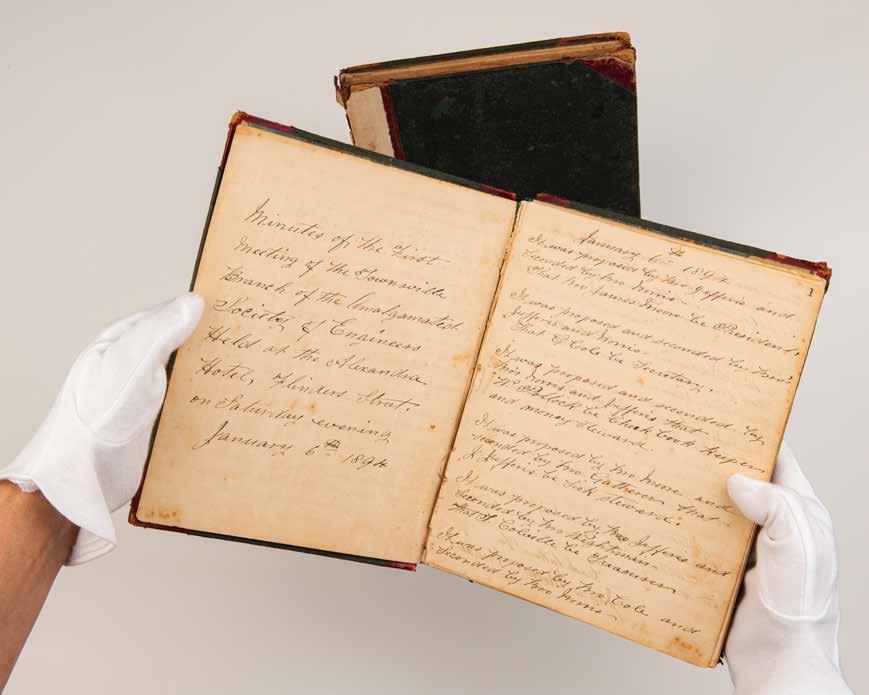 Minutes of the first
Meeting of the Townsville
Branch of the Amalgamated
Society of Engineers
Held at the Alexandra
Hotel, Flinders Street.
on Saturday evening
January 6th 1894
January 6th 1894
1
It was proposed by Bro Jefferis and
Seconded by Bro Nimis
That Bro James Moore be President.
It was proposed and seconded by Bros
Jefferis and Nimis
That C Cole be Secretary.
It was proposed and seconded by
Bros Nimis and Jefferis that
Wm Pollock be Check Book keeper
and money Steward
It was proposed by Bro Moore and
seconded by Bro Gatherer that
A Jefferis be Sick Steward.
It was proposed by Bro Jefferis and
Seconded by Bro
that J Colville be Treasurer
It was proposed by Bro Cole and
Seconded by Bro Nimis